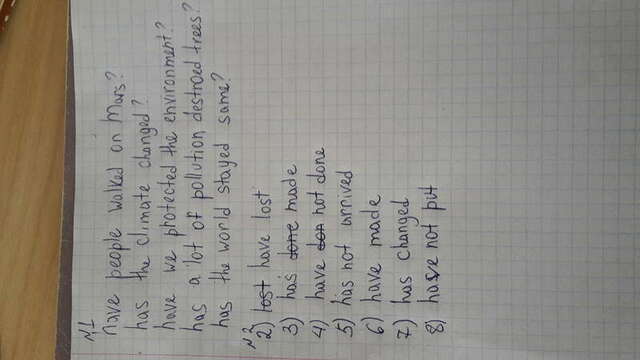 N1
have people walked on Mars?
has the climate changed?
have we protected the environment?
has a lot of pollution destroed trees?
has the world stayed same?
N2
2) lost have lost
3) has done made
4) have don not done
5) has not arrived
6) have made
7) has changed
8) have not put